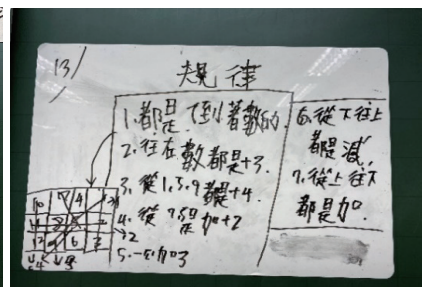 13/
規律
1.都是倒著數的
2.往左數都是+3.
3.從1,5,9都是+4.
4.從 7,5是加+2
5.一定加3
6.從下往上
都是減
7.從上往下
都是加.
10 7 4